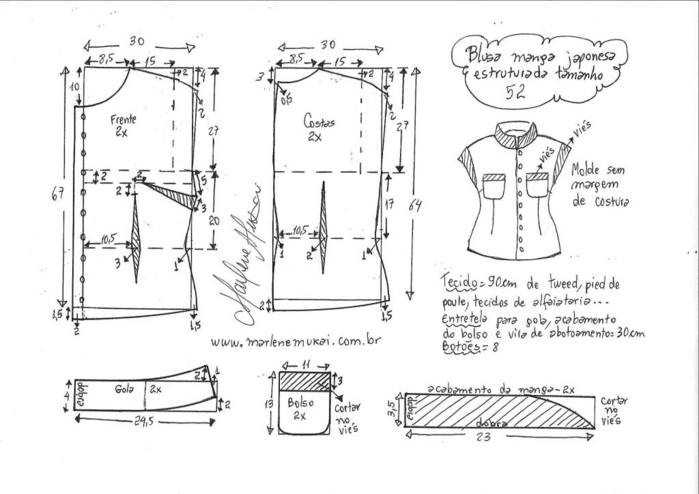 Blusa manga japonesa
estruturada tamanho
52
30
8,5
15
2
4
10
2
Frente
2x
27
67
2
2
2
5
3
20
10,5
3
1
1,5
2
1,5
30
8,5
15
2
4
3
0,5
2
Costas
2x
27
64
17
10,5
1
2
1
2
1,5
Marlene Mukai
www.marlenemukai.com.br
viés
viés
Molde sem
margem
de costura
Tecido=90cm de tweed, pied de
poule, tecidos de alfaiataria...
Entretela para gola, acabamento
do bolso e vira de abotoamento=30cm
Botões=8
4
dobra
Gola
2x
2
1
2
24,5
11
3
13
Bolso
2x
Cortar
no
viés
acabamento da manga-2x
3,5
dobra
dobra
23
Cortar
no
viés